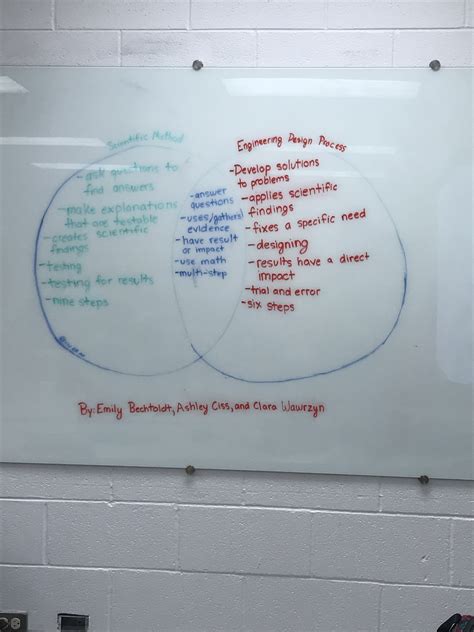 Scientific Method
-ask questions to
find answers
-make explanations
that are testable
-creates scientific
findings
-testing
-testing for results
-nine steps
-answer
questions
-uses/gathers
evidence
-have result
or impact
-use math
-multi-step
Engineering Design Process
-Develop solutions
to problems
-applies scientific
findings
-fixes a specific need
-designing
-results have a direct
impact
-trial and error
-six steps
By: Emily Bechtoldt, Ashley Ciss, and Clara Wawrzyn